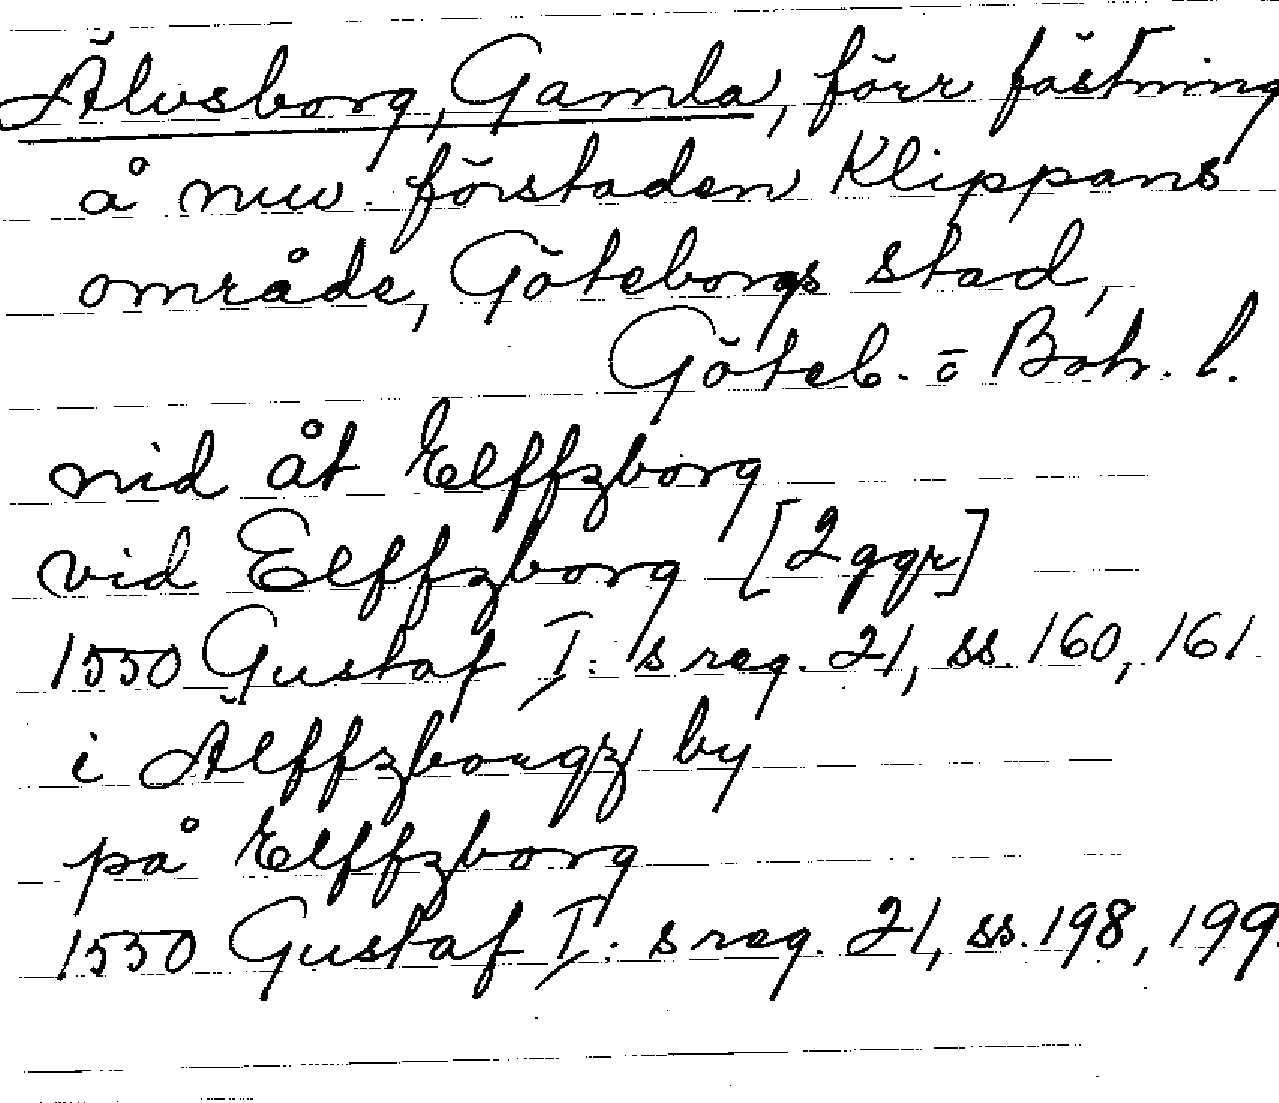 Älvsborg, Gamla, förr fästning
å nuv. förstaden Klippans
område, Göteborgs stad,
Göteb. o Boh. l.
nid åt Elffzborg
vid Elffzborg [2 ggr]
1550 Gustaf I:s reg. 21, ss. 160, 161
i Älffzborgz by
på Elffzborg
1550 Gustaf I:s reg. 21, ss. 198, 199.